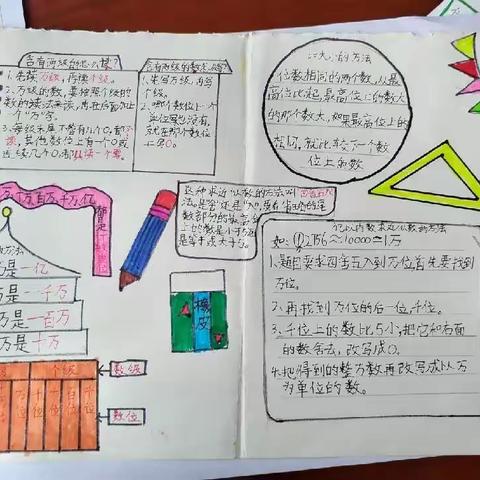 含有两级的怎么读?
1.先读万级,再读个级。
2.万级的数,要按照个级的
数的读法来读,再在后面加上
个"万"字。
3.每级末尾不管有几个0,都不
读,其他数位上有一个0或
连续几个0,都只读一个零。
含有两级的数怎么写?
1.先写万级,再写
个级。
2.哪个数位上一个
单位都没有,
就在那个数位
上写0。
的方法
位数相同的两个数,从最
高位比起,最高位上的数大
的那个数大,如果最高位上的
数相同,就比较下一个数
位上的数
万、十万、百万、千万、亿
都是
计数单位
方法
是一亿
万是一千万
万是一百万
万是十万
个级
数级
万位
千位
百位
十位
个位
数位
橡皮
这种求近似数的方法叫四舍五入
法,是"舍"还是"入",要看省略的尾
数部分的最高
上的数是小于5还
是等于或大于5。
亿以内数求近似数的方法
如:①12756≈10000=1万
1.题目要求四舍五入到万位,首先要找到
万位。
2.再找到万位的后一位,千位。
3.千位上的数比5小,把它和右面
的数舍去,改写成0。
4.把得到的整万数再改写成以万
为单位的数。